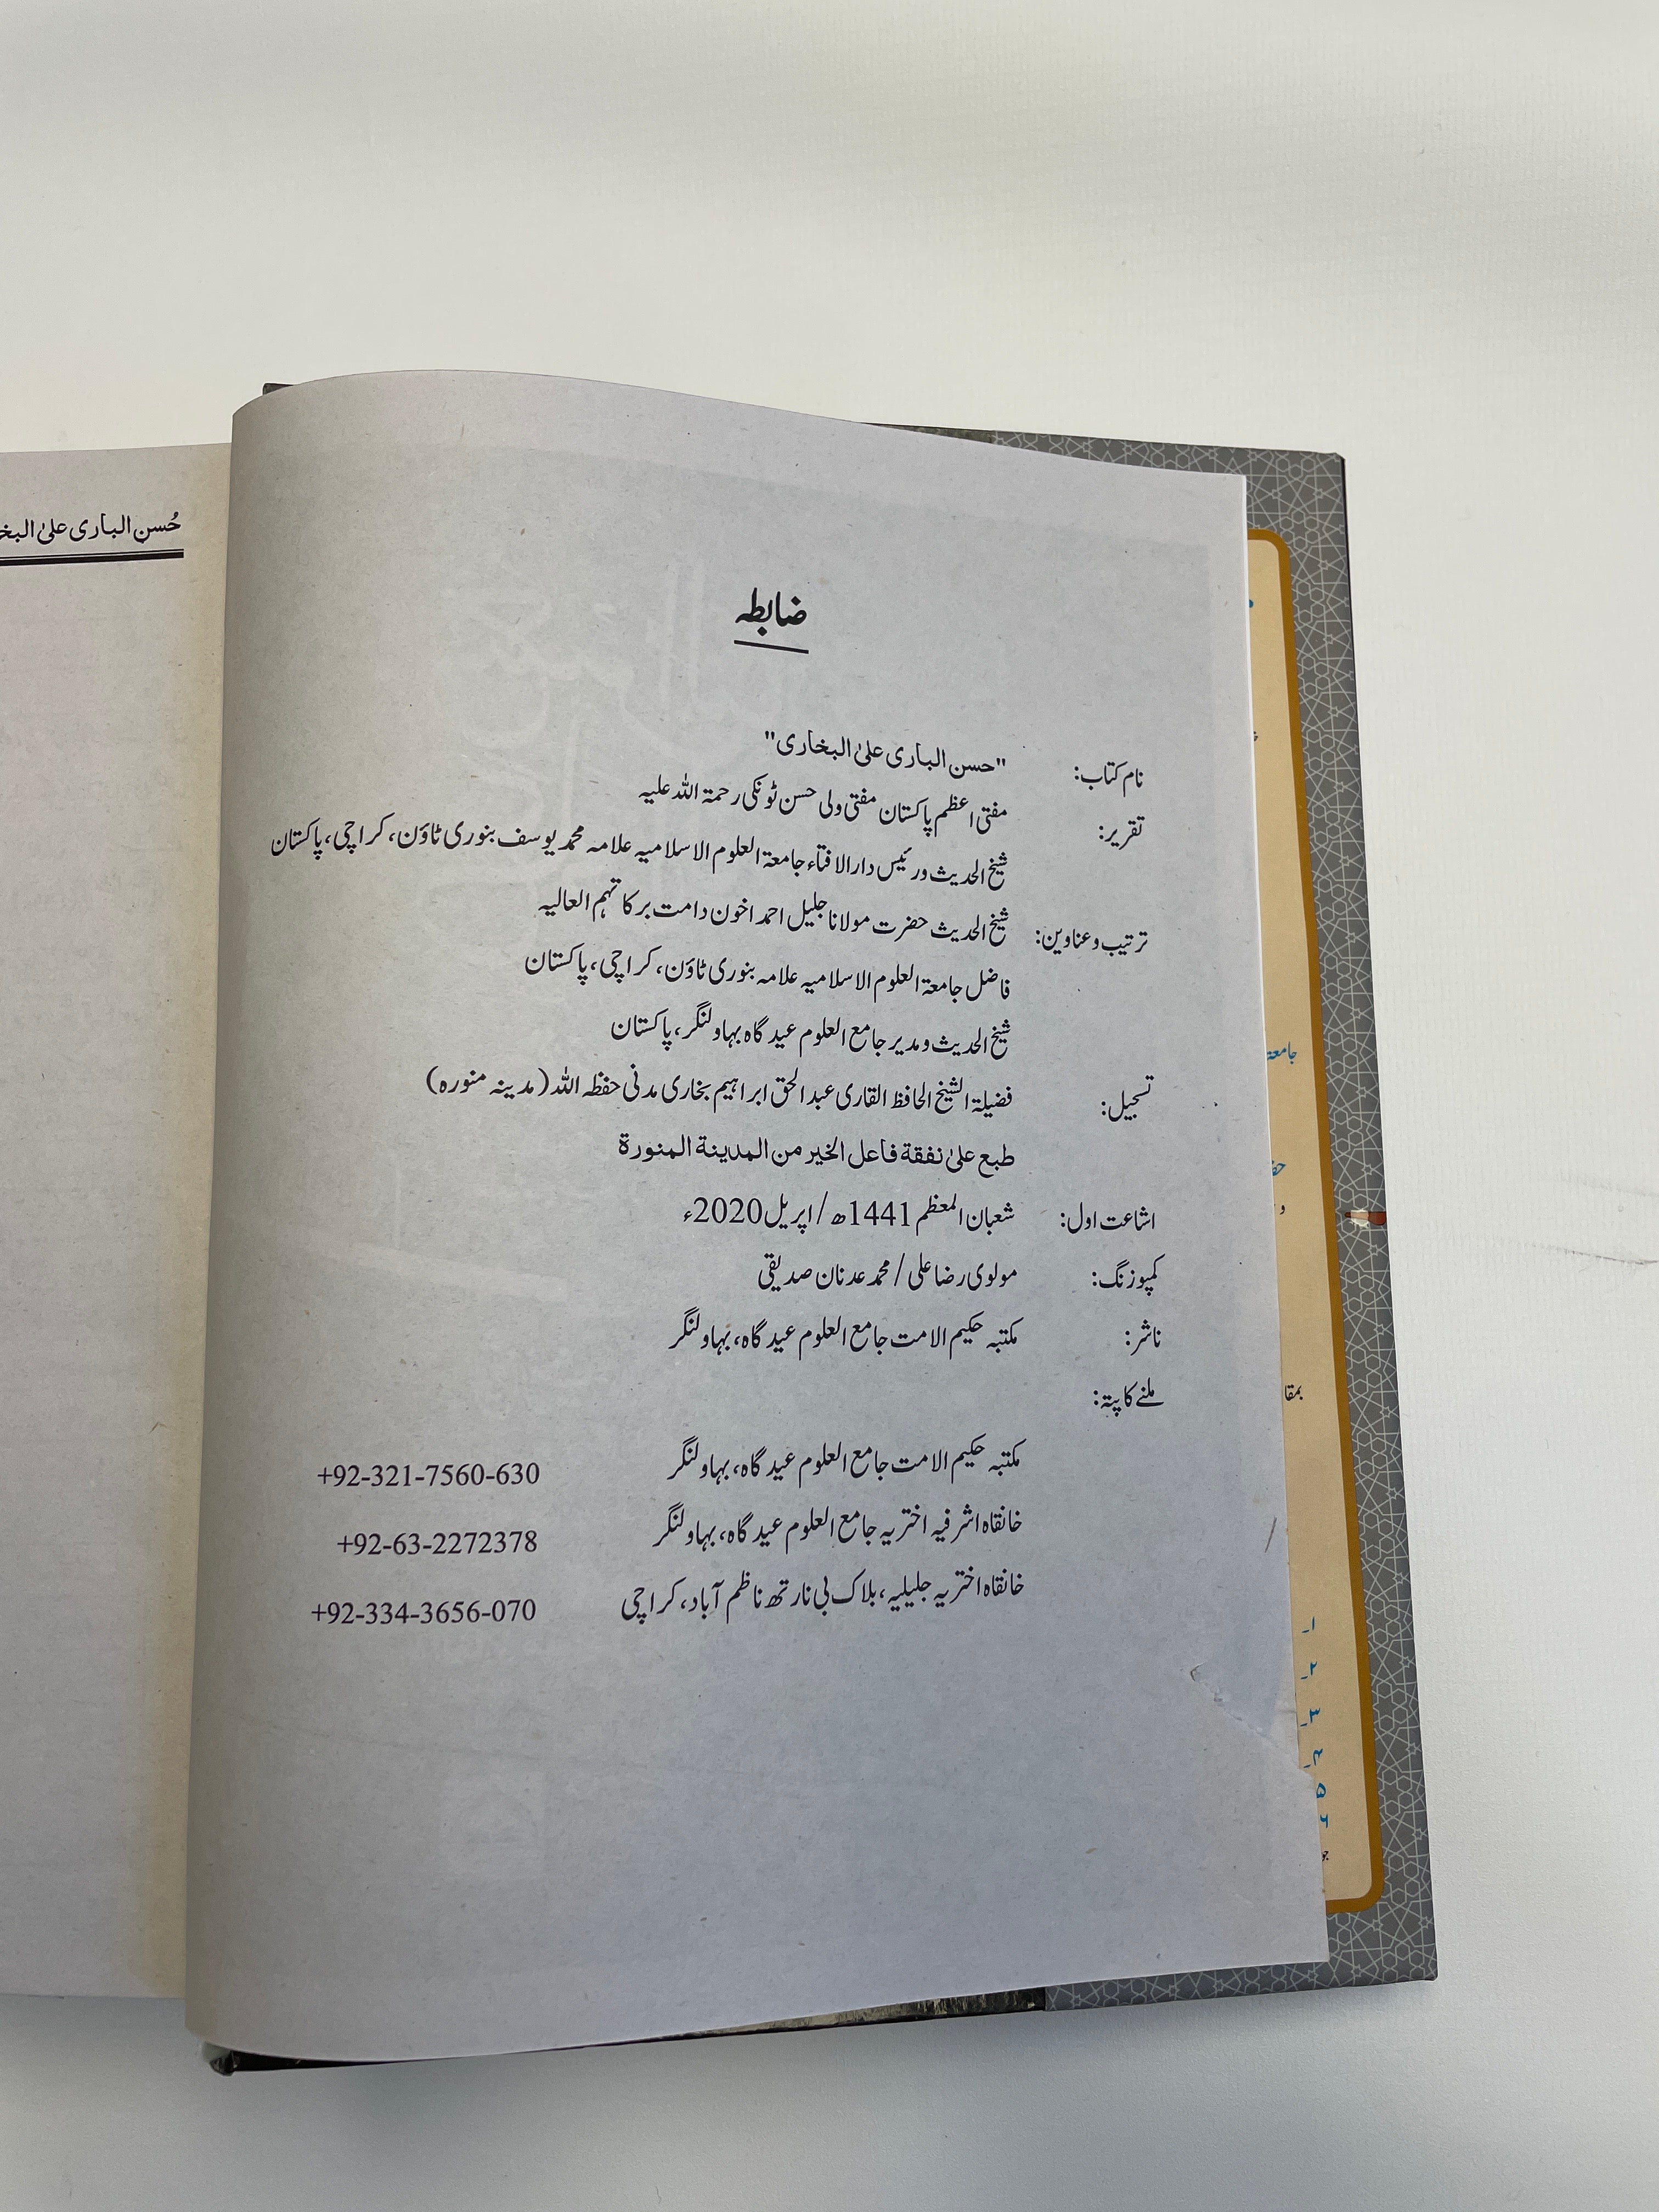 ضابطہ
نام کتاب: "حسن الباری علیٰ البخاری"
تقریر: مفتی اعظم پاکستان مفتی ولی حسن ٹونکی رحمۃ اللہ علیہ
شیخ الحدیث ورئیس دارالافتاء جامعۃ العلوم الاسلامیہ علامہ محمد یوسف بنوری ٹاؤن، کراچی، پاکستان
ترتیب وعناوین: شیخ الحدیث حضرت مولانا جلیل احمد اخون دامت برکاتہم العالیہ
فاضل جامعۃ العلوم الاسلامیہ علامہ بنوری ٹاؤن، کراچی، پاکستان
شیخ الحدیث ومدیر جامع العلوم عید گاہ بہاولنگر، پاکستان
تسجیل: فضیلۃ الشیخ الحافظ القاری عبد الحق ابراہیم بخاری مدنی حفظہ اللہ (مدینہ منورہ)
طبع علیٰ نفقة فاعل الخیر من المدینة المنورة
اشاعت اول: شعبان المعظم 1441ھ/اپریل 2020ء
کمپوزنگ: مولوی رضا علی / محمد عدنان صدیقی
ناشر: مکتبہ حکیم الامت جامع العلوم عید گاہ، بہاولنگر
ملنے کا پتہ:
مکتبہ حکیم الامت جامع العلوم عید گاہ، بہاولنگر +92-321-7560-630
خانقاہ اشرفیہ اختریہ جامع العلوم عید گاہ، بہاولنگر +92-63-2272378
خانقاہ اختریہ جلیلیہ، بلاک بی نارتھ ناظم آباد، کراچی +92-334-3656-070
حُسن الباری علیٰ
جامعۃ
۱۔
۲۔
۳۔
۴۔
۵
۶